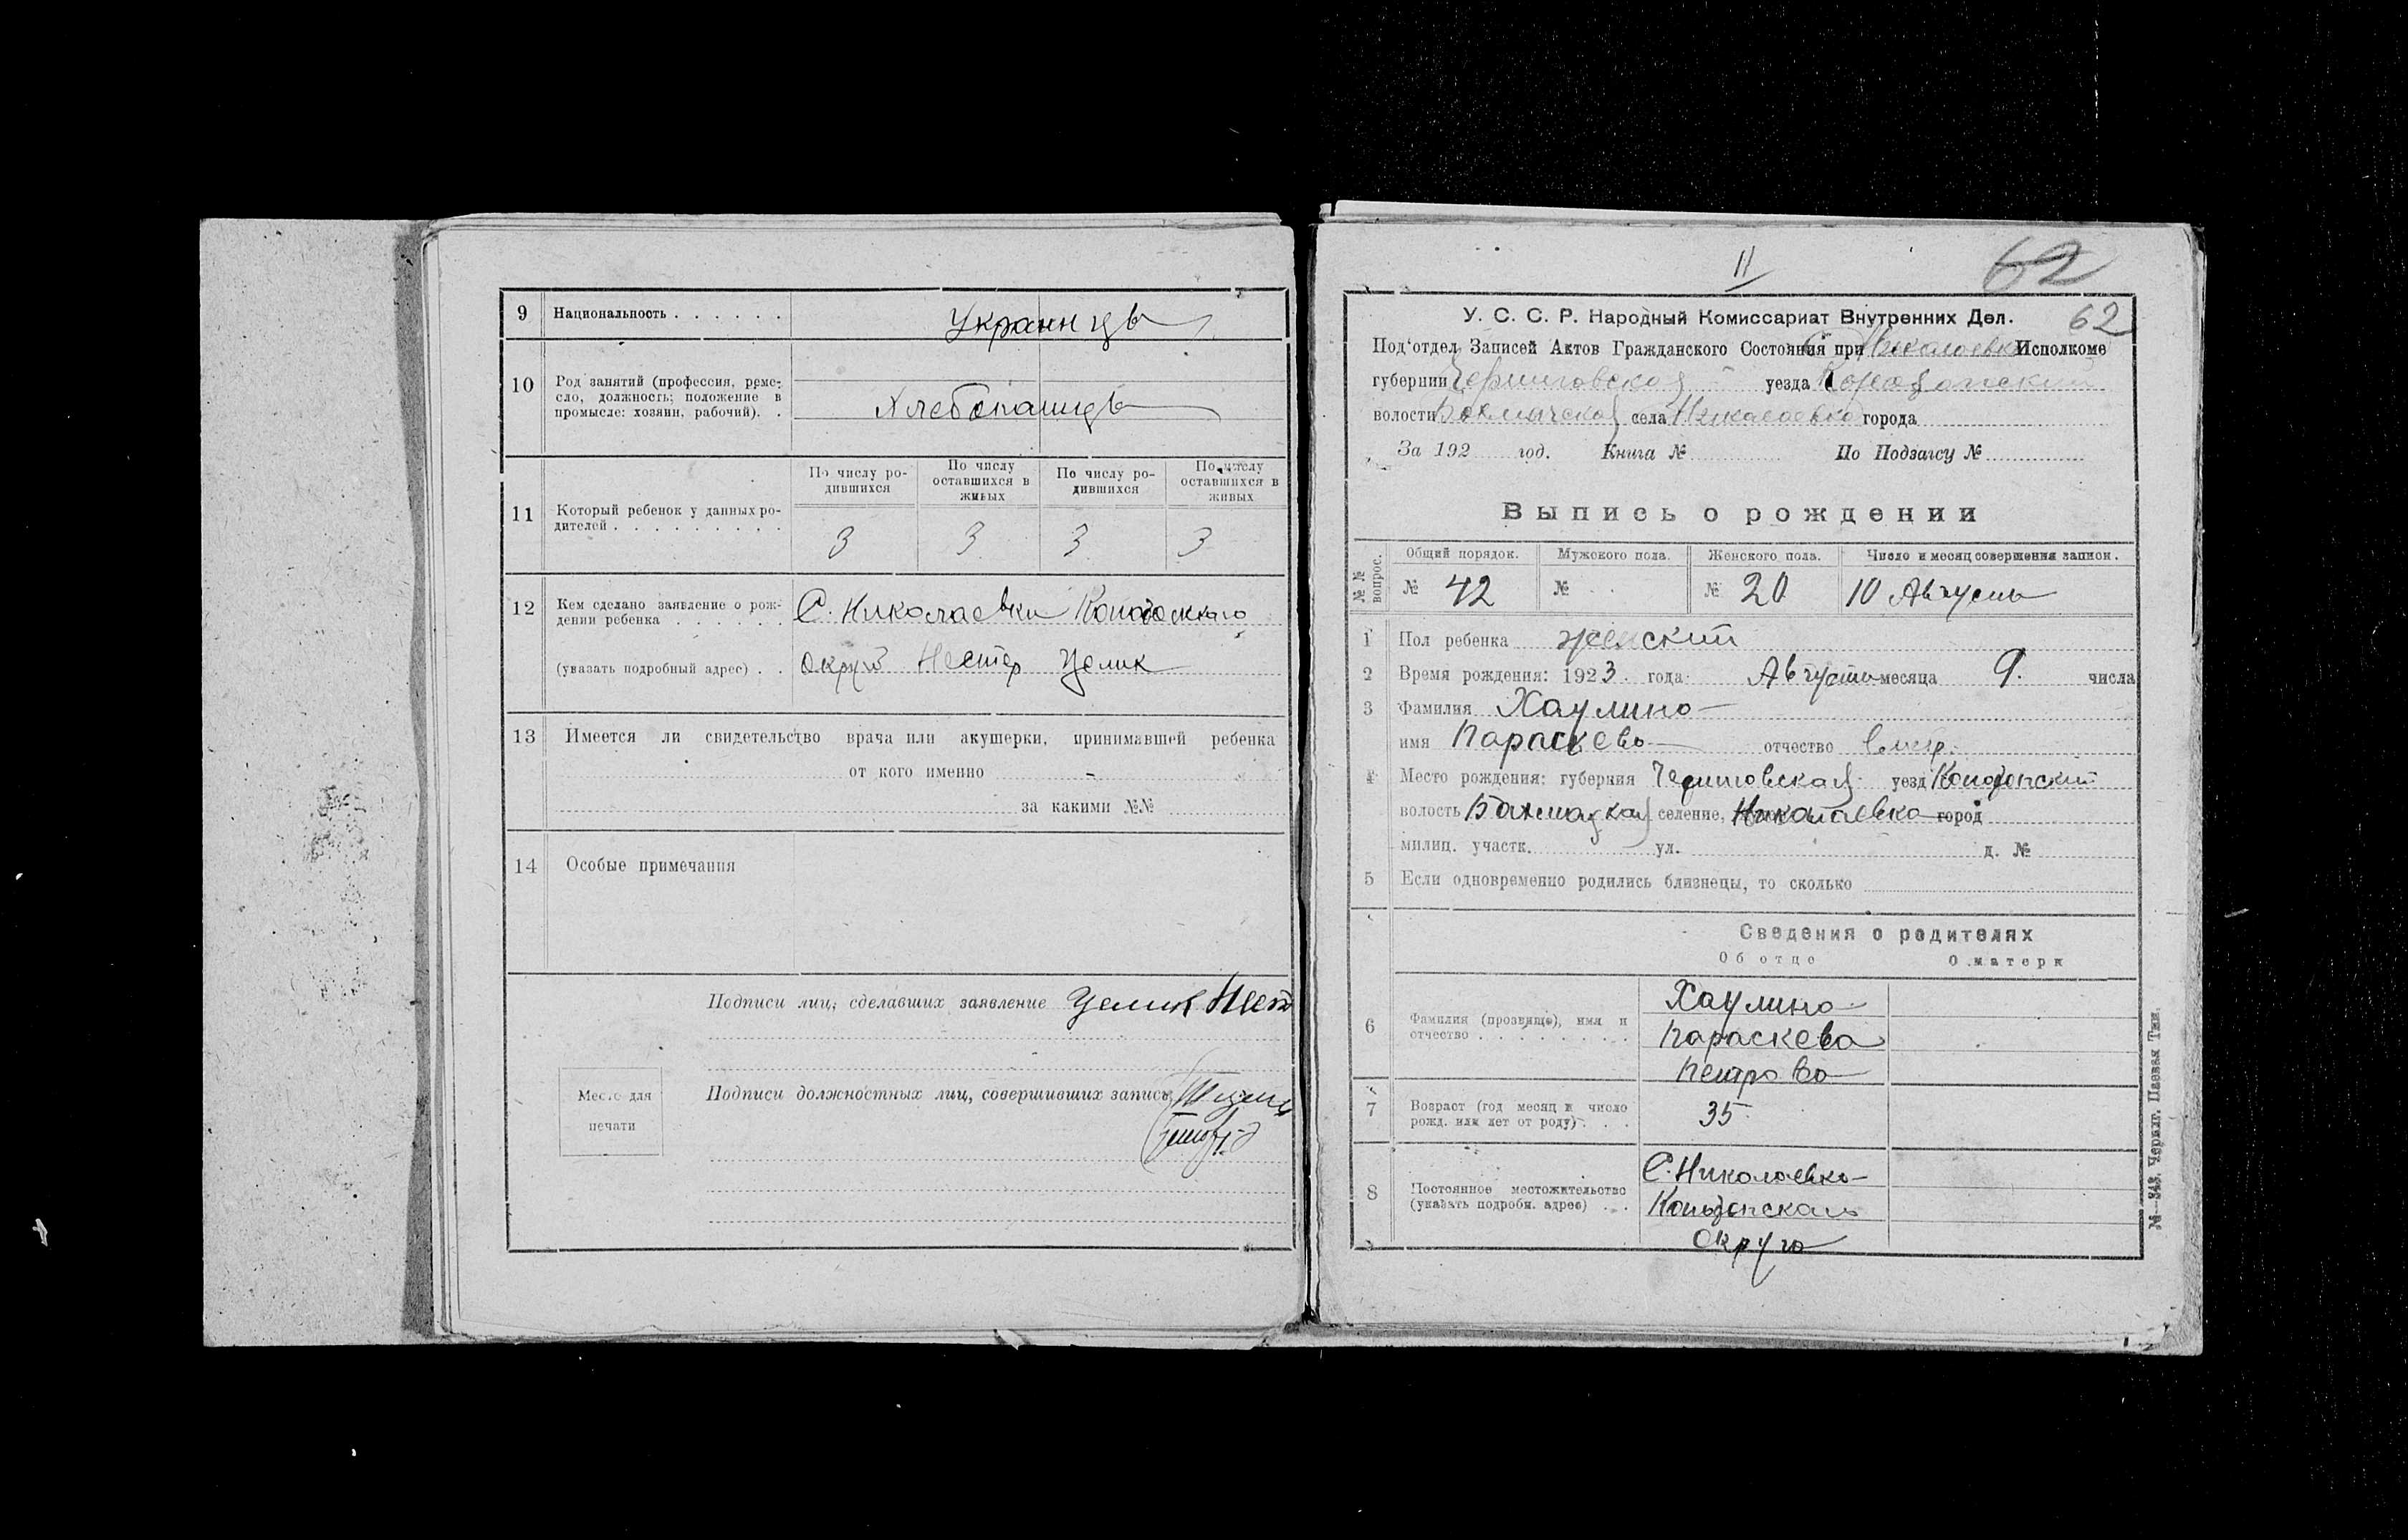 9 Национальность . . . . . . Украинцы
10 Род занятий (профессия, реме-
сло, должность; положение в
промысле: хозяин, рабочий). .
Хлебопашцы
11 Который ребенок у данных ро-
дителей . . . . . . . . .
По числу ро-
дившихся
По числу
оставшихся в
живых
По числу ро-
дившихся
По числу
оставшихся в
живых
3 3 3 3
12 Кем сделано заявление о рож-
дении ребенка . . . . . .
С. Николаевки
(указать подробный адрес) . .
Нестер
13 Имеется ли свидетельство врача или акушерки, принимавшей ребенка
от кого именно -
за какими №№
14 Особые примечания
Подписи лиц, сделавших заявление
Место для
печати
Подписи должностных лиц, совершивших запись
11
62
62
У. С. С. Р. Народный Комиссариат Внутренних Дел.
Под'отдел Записей Актов Гражданского Состояния при Исполкоме
губернии Черниговская уезда Конотопский
волости села Николаевка города
За 192 год. Книга № По Подзагсу №
Выпись о рождении
№ №
вопрос.
Общий порядок. Мужского пола. Женского пола. Число и месяц совершения записи.
№ 42 № № 20 10 Августа
1 Пол ребенка женский
2 Время рождения: 1923 года Августа месяца 9. числа
3 Фамилия Хаулино
имя Параскева отчество
4 Место рождения: губерния Черниговская уезд Конотопский
волость Бахмацкая селение, Николаевка город
милиц. участк. ул. д. №
5 Если одновременно родились близнецы, то сколько
Сведения о родителях
Об отце О матери
6 Фамилия (прозвище), имя и
отчество . . . . . . . .
Хаулино
Параскева
Петрова
7 Возраст (год месяц и число
рожд. или лет от роду) . . .
35
8 Постоянное местожительство
(указать подробн. адрес) . . .
С. Николаевка
Округа
№—343. Черниг. Паевая Тип.